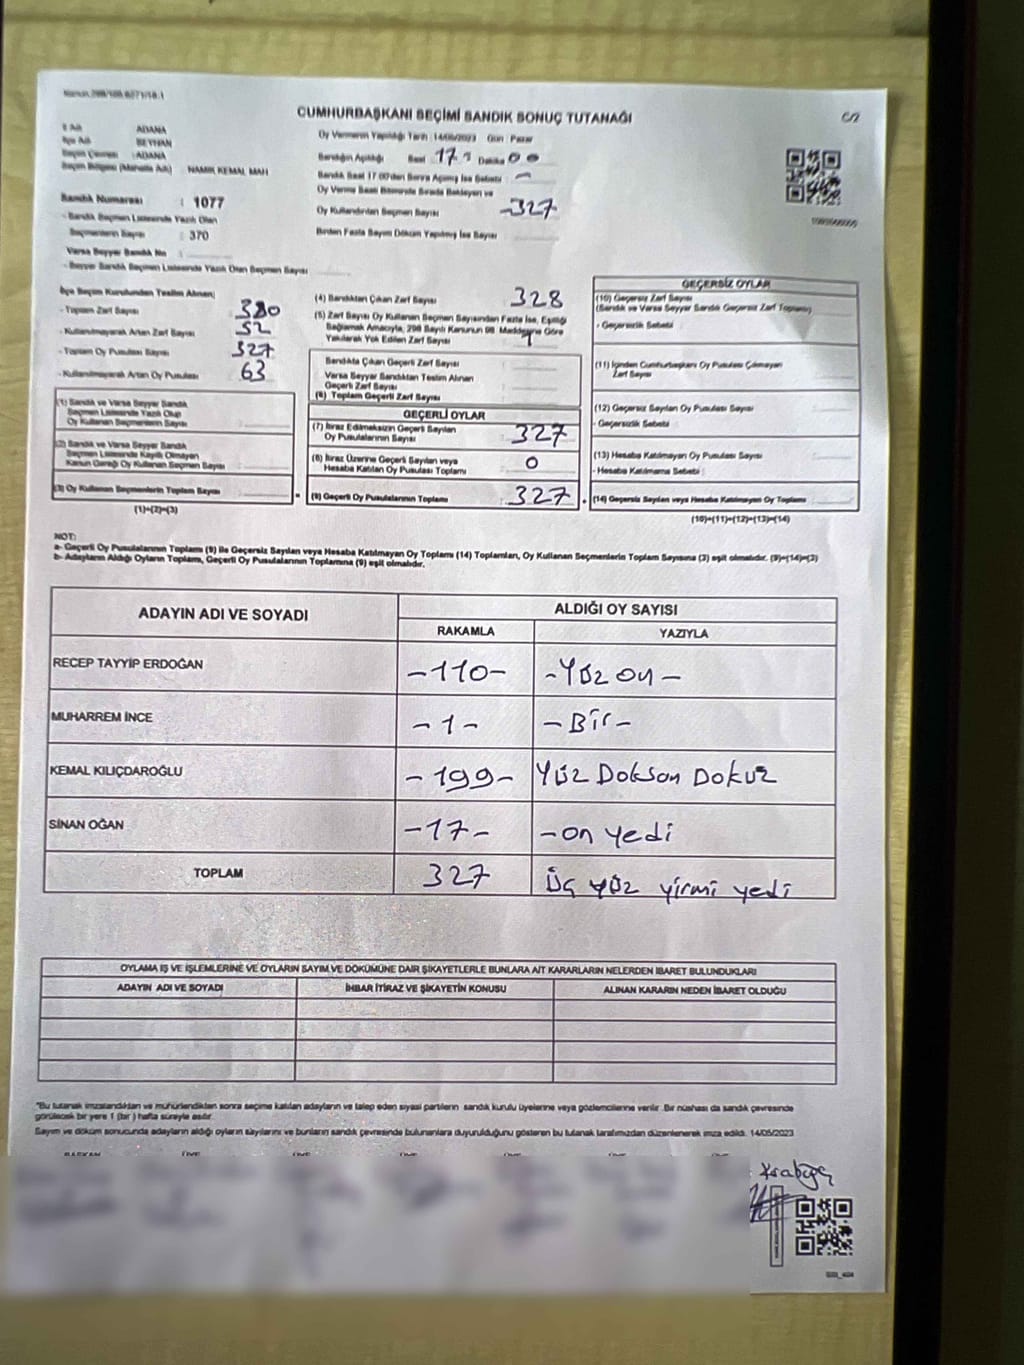 CUMHURBAŞKANI SEÇİMİ SANDIK SONUÇ TUTANAĞI
İl Adı : ADANA
İlçe Adı : SEYHAN
Seçim Çevresi : ADANA
Seçim Bölgesi (Mahalle Adı) : NAMIK KEMAL MAH
Sandık Numarası : 1077
- Sandık Seçmen Listesinde Yazılı Olan
Seçmenlerin Sayısı : 370
Varsa Seyyar Sandık No :
- Seyyar Sandık Seçmen Listesinde Yazılı Olan Seçmen Sayısı :
Oy Vermenin Yapıldığı Tarih : 14/05/2023 Gün : Pazar
Sandığın Açıldığı Saat : 17 Dakika 00
Sandık Saat 17.00'den Sonra Açılmış İse Sebebi : -
Oy Verme Saati Bitiminde Sırada Bekleyen ve
Oy Kullandırılan Seçmen Sayısı -327
Birden Fazla Sayım Döküm Yapılmış İse Sayısı :
İlçe Seçim Kurulundan Teslim Alınan;
- Toplam Zarf Sayısı : 380
- Kullanılmayarak Artan Zarf Sayısı : 52
- Toplam Oy Pusulası Sayısı : 327
- Kullanılmayarak Artan Oy Pusulası : 63
(1) Sandık ve Varsa Seyyar Sandık
Seçmen Listesinde Yazılı Olup
Oy Kullanan Seçmenlerin Sayısı :
(2) Sandık ve Varsa Seyyar Sandık
Seçmen Listesinde Kayıtlı Olmayan
Kanun Gereği Oy Kullanan Seçmen Sayısı :
(3) Oy Kullanan Seçmenlerin Toplam Sayısı :
(1)+(2)=(3)
(4) Sandıktan Çıkan Zarf Sayısı : 328
(5) Zarf Sayısı Oy Kullanan Seçmen Sayısından Fazla İse, Eşitliği
Sağlamak Amacıyla, 298 Sayılı Kanunun 98. Maddesine Göre
Yakılarak Yok Edilen Zarf Sayısı : 1
Sandıkta Çıkan Geçerli Zarf Sayısı :
Varsa Seyyar Sandıktan Teslim Alınan
Geçerli Zarf Sayısı :
(6) Toplam Geçerli Zarf Sayısı :
GEÇERLİ OYLAR
(7) İtiraz Edilmeksizin Geçerli Sayılan
Oy Pusulalarının Sayısı : 327
(8) İtiraz Üzerine Geçerli Sayılan veya
Hesaba Katılan Oy Pusulası Toplamı : 0
(9) Geçerli Oy Pusulalarının Toplamı : 327
GEÇERSİZ OYLAR
(10) Geçersiz Zarf Sayısı
(Sandık ve Varsa Seyyar Sandık Geçersiz Zarf Toplamı)
- Geçersizlik Sebebi :
(11) İçinden Cumhurbaşkanı Oy Pusulası Çıkmayan
Zarf Sayısı :
(12) Geçersiz Sayılan Oy Pusulası Sayısı :
- Geçersizlik Sebebi :
(13) Hesaba Katılmayan Oy Pusulası Sayısı :
- Hesaba Katılmama Sebebi :
(14) Geçersiz Sayılan veya Hesaba Katılmayan Oy Toplamı :
(10)+(11)+(12)+(13)=(14)
NOT:
a- Geçerli Oy Pusulalarının Toplamı (9) ile Geçersiz Sayılan veya Hesaba Katılmayan Oy Toplamı (14) Toplamları, Oy Kullanan Seçmenlerin Toplam Sayısına (3) eşit olmalıdır. (9)+(14)=(3)
b- Adayların Aldığı Oyların Toplamı, Geçerli Oy Pusulalarının Toplamına (9) eşit olmalıdır.
ADAYIN ADI VE SOYADI ALDIĞI OY SAYISI
RAKAMLA YAZIYLA
RECEP TAYYİP ERDOĞAN -110- -Yüz on-
MUHARREM İNCE -1- -Bir-
KEMAL KILIÇDAROĞLU -199- Yüz Dokson Dokuz
SİNAN OĞAN -17- -on yedi
TOPLAM 327 üç yüz yirmi yedi
OYLAMA İŞ VE İŞLEMLERİNE VE OYLARIN SAYIM VE DÖKÜMÜNE DAİR ŞİKAYETLERLE BUNLARA AİT KARARLARIN NELERDEN İBARET BULUNDUKLARI
ADAYIN ADI VE SOYADI İHBAR İTİRAZ VE ŞİKAYETİN KONUSU ALINAN KARARIN NEDEN İBARET OLDUĞU
"Bu tutanak imzalandıktan ve mühürlendikten sonra seçime katılan adayların ve talep eden siyasi partilerin sandık kurulu üyelerine veya gözlemcilerine verilir. Bir nüshası da sandık çevresinde
görülecek bir yere 1 (bir) hafta süreyle asılır.
Sayım ve döküm sonucunda adayların aldığı oyların sayılarını ve bunların sandık çevresinde bulunanlara duyurulduğunu gösteren bu tutanak tarafımızdan düzenlenerek imza edildi. 14/05/2023
BAŞKAN ÜYE ÜYE ÜYE ÜYE ÜYE